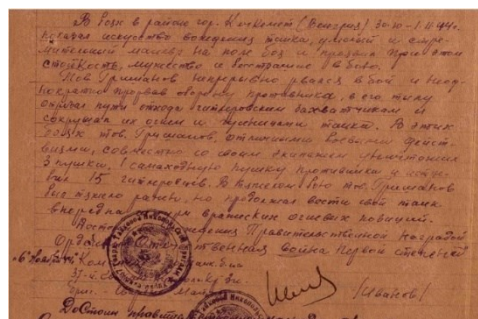 В боях в районе гор. Кечкемет (Венгрия) 30.10-1.11.44г.
показал искусство вождения танка, умелый и стре-
мительный маневр на поле боя и проявил при этом
стойкость, мужество и бесстрашие в бою.
Тов. Гриманов непрерывно рвался в бой и неод-
нократно прорвав оборону противника, в его тылу
отрезал пути отхода гитлеровским захватчикам и
сокрушал их огнем и гусеницами танка. В этих
боях тов. Гриманов, отличными боевыми дейст-
виями, совместно со своим экипажем уничтожил
3 пушки, 1 самоходную пушку противника и
15 гитлеровцев. В бою тов. Гриманов
был ранен, но продолжал вести свой танк
вперед вражеских огневых позиций.
Достоин Правительственной награды
Орден Отечественная война первой степени
Ком
37-й
/Иванов/
Достоин правительственной